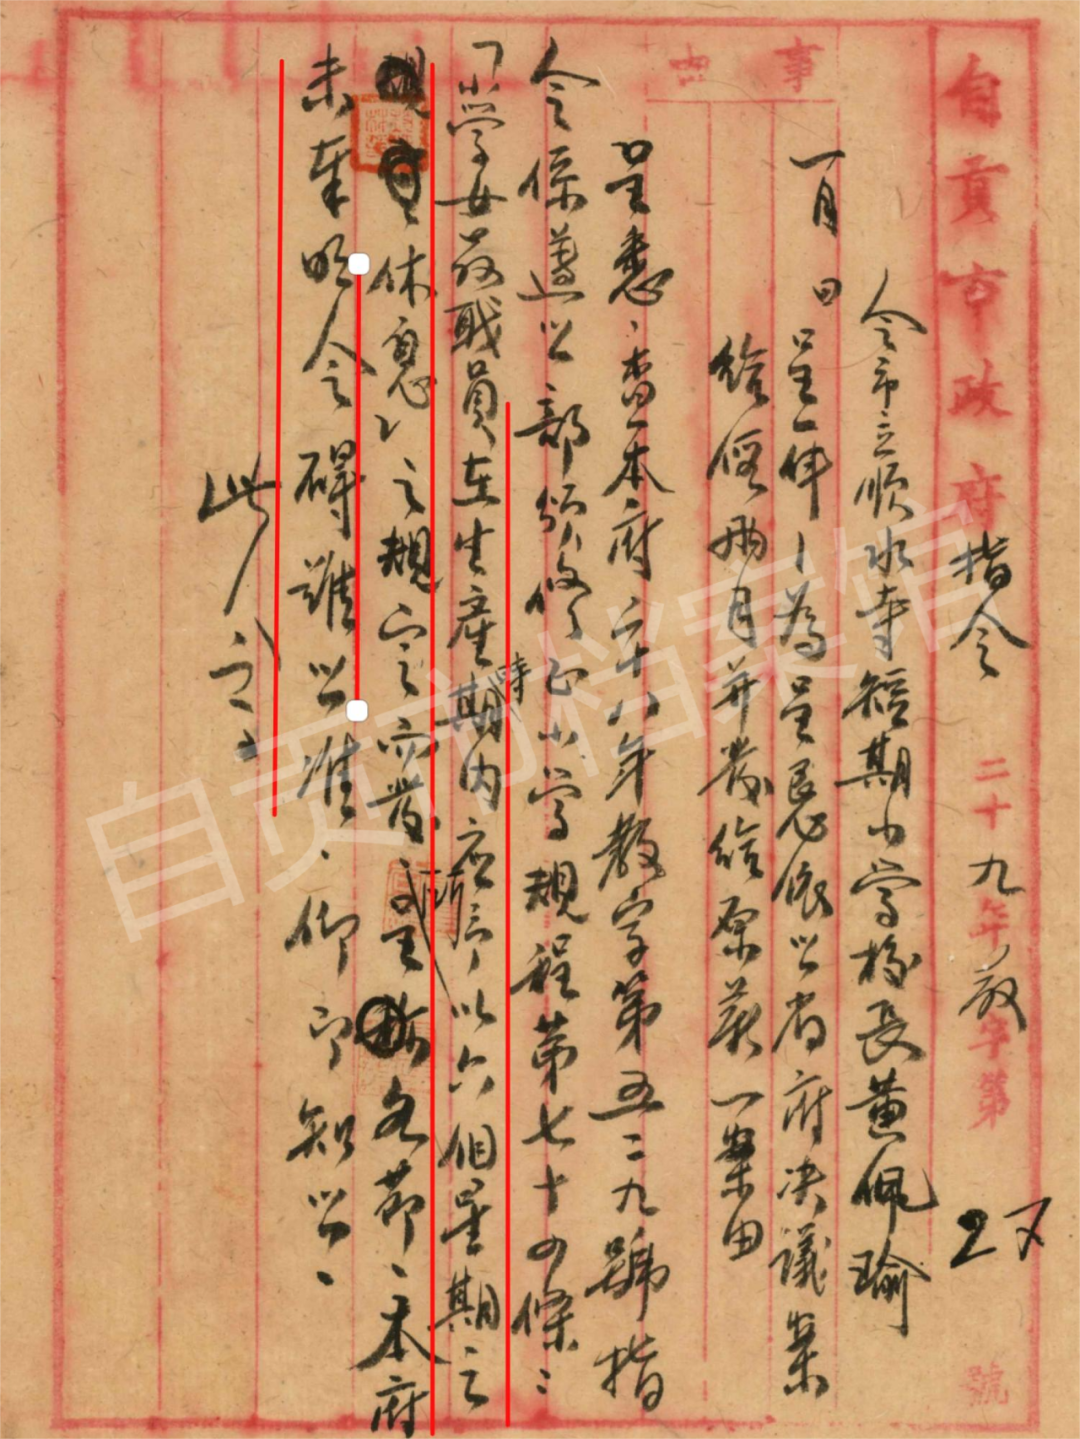 自貢市政府指令 二十九年教字第27號
令市立順水寺短期小學校長黃佩瑜
事由
一月 日呈一件 為呈懇依照省府決議案
給假兩月并發給原薪一案由
呈悉、查本府二十八年教字第五二九號指
令係遵照部頒修正小學規程第七十四條：
「小學女教職員在生產時期內應予以六個星期之
休息」之規定而發、呈稱各節、本府
未奉明令碍難照准、仰即知照、
此令、
自贡市档案馆